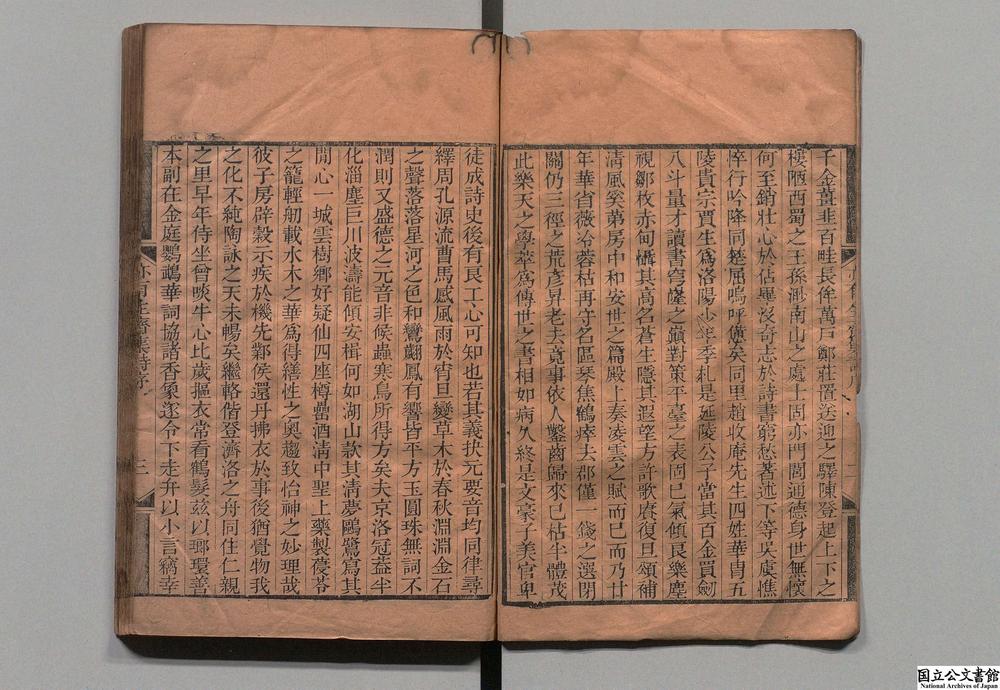 千金薑韭百畦長侔萬戸鄭莊置送迎之驛陳登起上下之
樓陋西蜀之王孫渺南山之處士固亦門閭通德身世無懷
何至銷壯心於佔畢沒奇志於詩書窮愁著述下等吳虞憔
悴行吟降同楚屈嗚呼僊矣同里趙收庵先生四姓華胄五
陵貴宗賈生爲洛陽少年季札是延陵公子當其百金買劒
八斗量才讀書穹窿之巔對策平臺之表固已氣傾良樂塵
視鄒枚赤甸懾其高名蒼生隱其遐望方許歌賡復旦頌補
淸風奚第房中和安世之篇殿上奏凌雲之賦而已而乃廿
年華省薇冷蓉枯再守名區琴焦鶴瘁去郡僅一錢之選閉
關仍三徑之荒彥昇老去竟事依人鑿齒歸來已枯半體茂
此樂天之學萃爲傳世之書相如病久終是文豪子美官卑
徒成詩史後有良工心可知也若其義抉元要音均同律尋
繹周孔源流曹馬感風雨於宵旦變草木於春秋淵淵金石
之聲落落星河之色和鸞翽鳳有響皆平方玉圓珠無詞不
潤則又盛德之元音非候蟲寒鳥所得方矣夫京洛冠蓋半
化淄塵巨川波濤能傾安楫何如湖山款其淸夢鷗鷺寫其
閒心一城雲樹鄉好疑仙四座樽罍酒淸中聖上藥製蔓苓
之籠輕舠載水木之華爲得繕性之奧趨致怡神之妙理哉
彼子房辟榖示疾於機先鄴侯還丹拂衣於事後猶覺物我
之化不純陶詠之天未暢矣繼輅偕登濟洛之舟同住仁親
之里早年侍坐曾啖牛心比歲摳衣常看鶴髮兹以瑯環善
本副在金庭鸚鵡華詞協諸香象遂令下走弁以小言竊幸
三
國立公文書館
National Archives of Japan